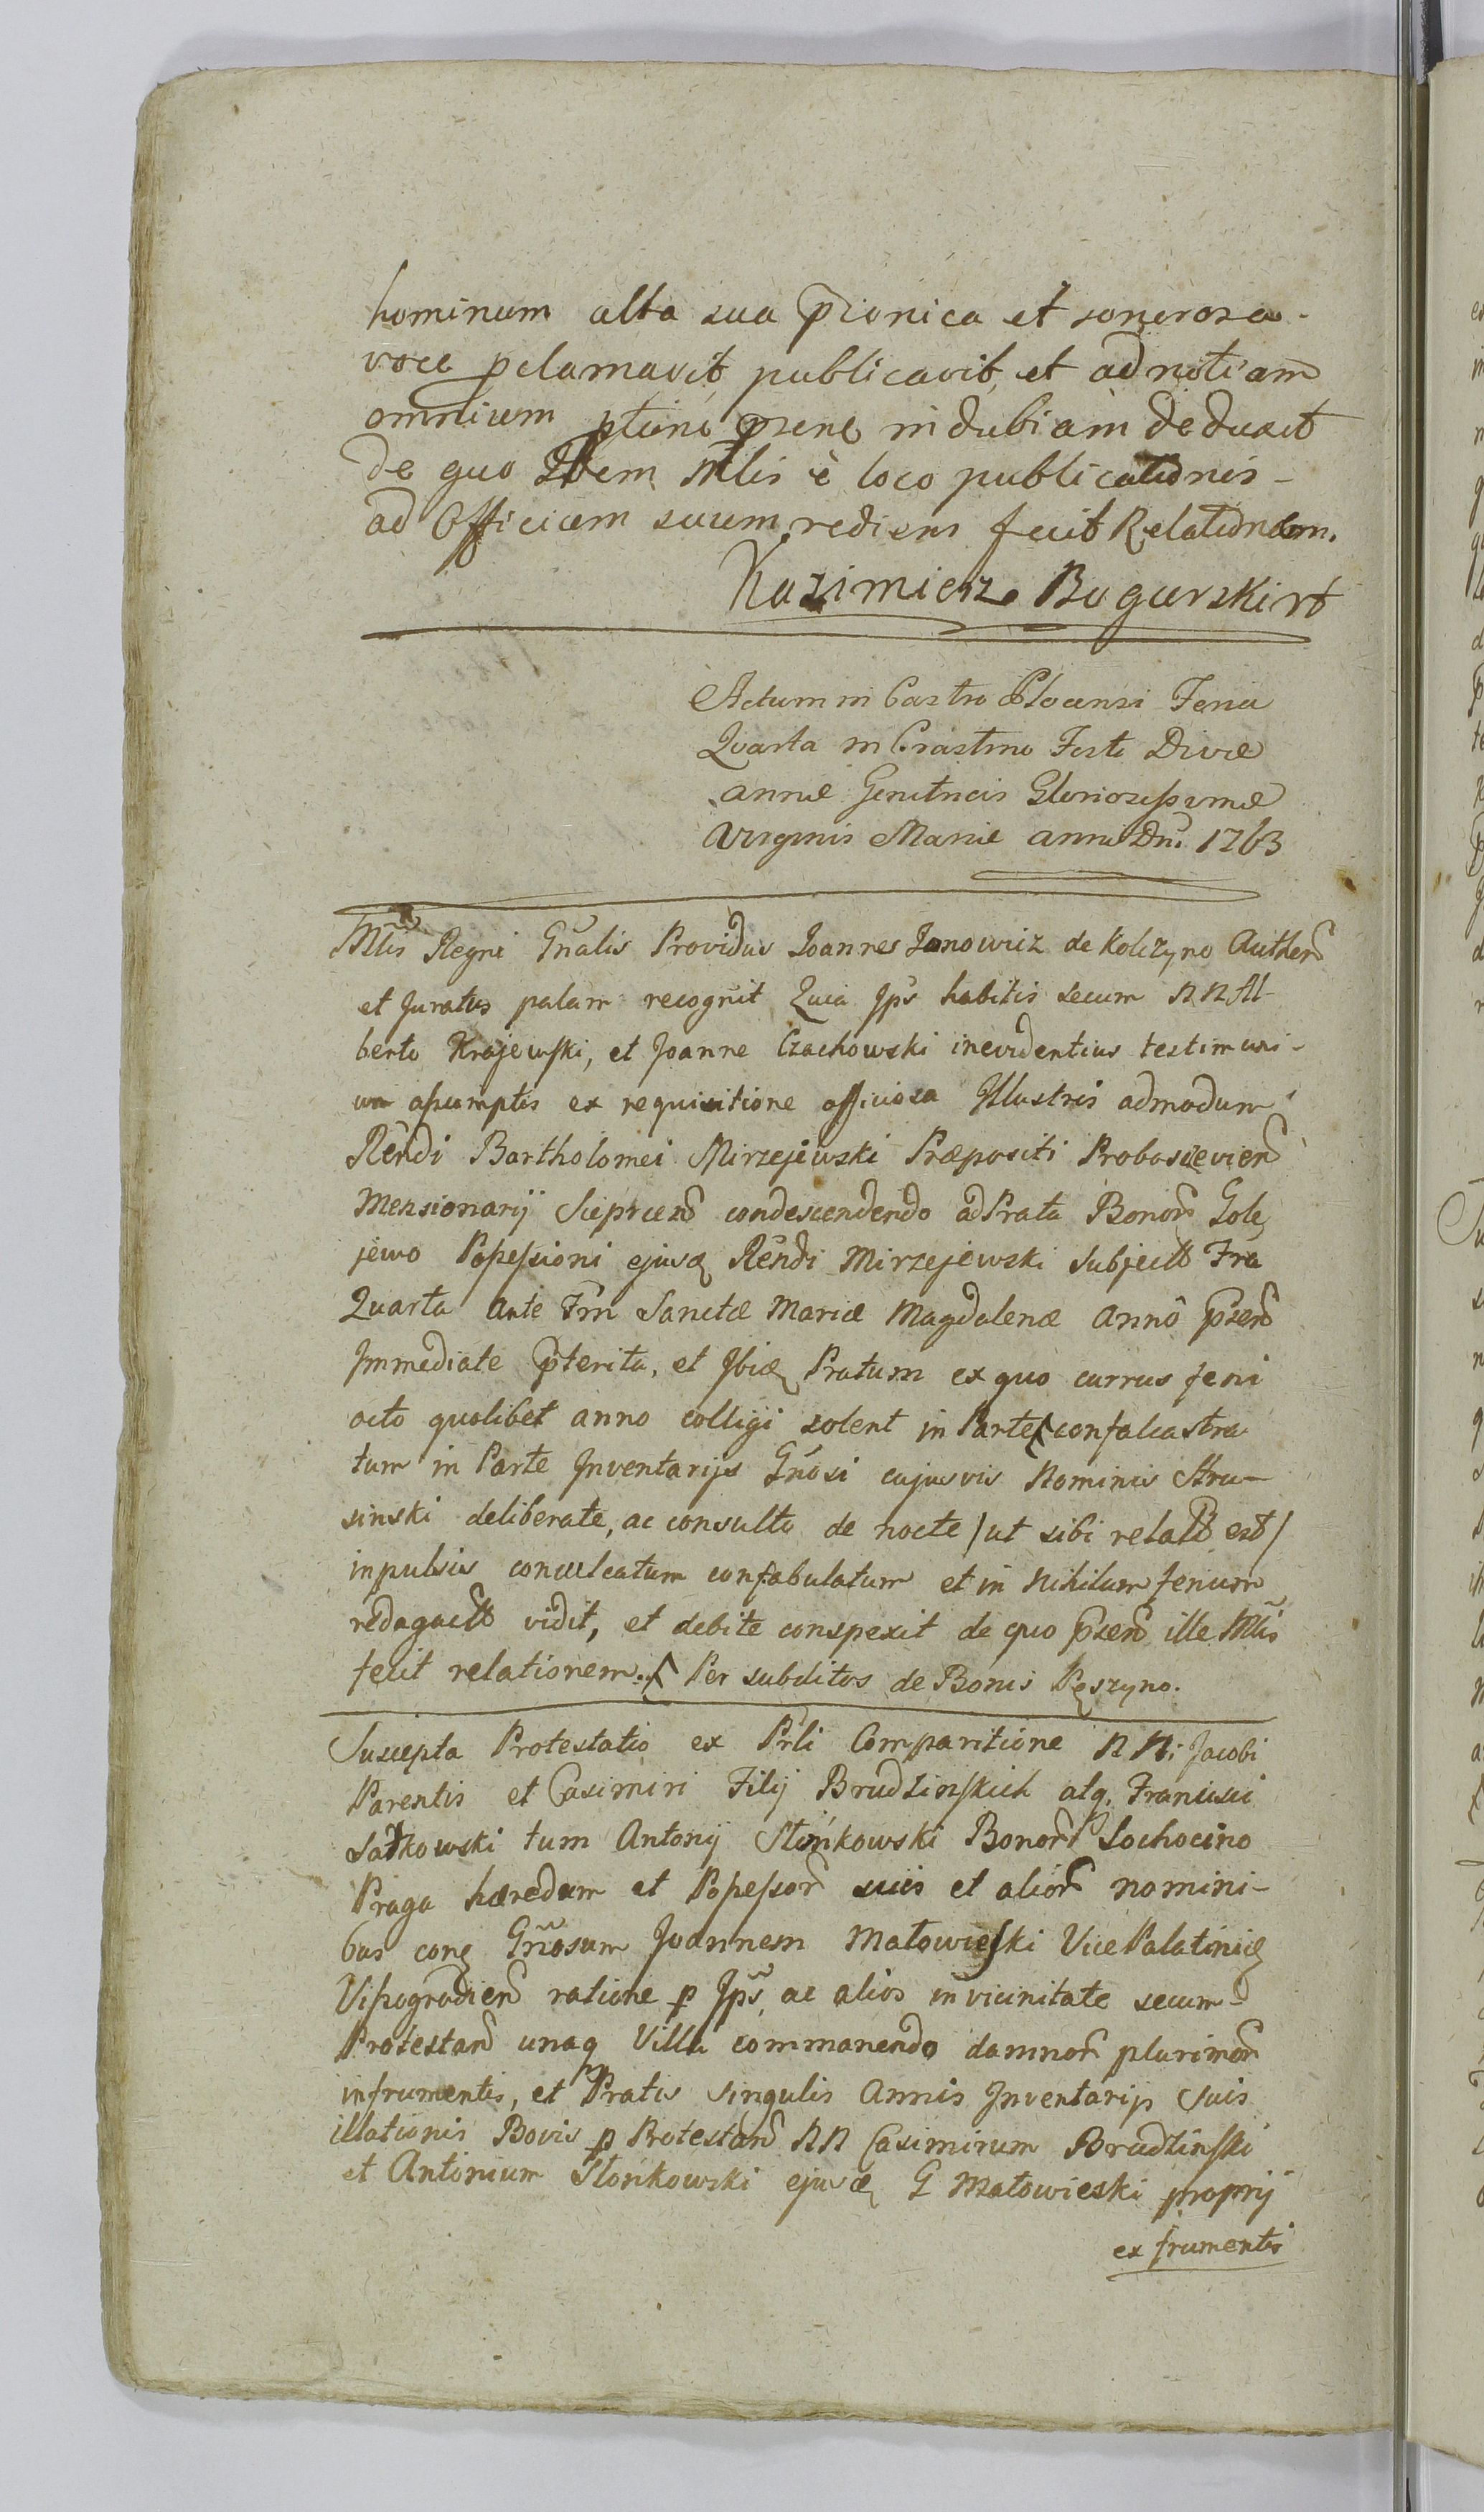 hominum alta sua p̄conica et sonorosa
voce pclamavit, publicavit, et ad notiam
omnium ptium psene indubiam deduxit
de quo Idem Mlis è loco publicationis
ad Officium suum rediens fecit Relationem.
Kazimierz Bogurski
Actum in Castro Plocensi Feria
Quarta in Crastino Festi Divæ
Annæ Genitricis Gloriosissimæ
Virginis Mariæ anno Dni. 1763
Mlis Regni Gnalis Providus Joannes Janowicz de Kolczyno Authen
et Juratus palam recognit Quia Ips habitis secum NN Al-
berto Krajewski, et Joanne Czachowski in evidentius testimoni-
um assumptis ex requisitione officiosa Illustris admodum
Rendi Bartholomei Mirzejewski Præpositi Proboscevien
Mensionarij Sieprcen condescendendo ad Prata Bonor Gole
jewo Possessioni ejusd Rendi Mirzejewski Subject Fra
Quarta Ante Fm Sanctæ Mariæ Magdalenæ Anno psen
Immediate pterita, et Ibid Pratum ex quo currus feni
octo quolibet anno colligi solent in Parte confalcastra
tum in Parte Inventarijs Gnosi cujusvis Nominis Stru-
sinski deliberate, ac consulto de nocte / ut sibi relatt est /
inpulsis conculcatum confabulatum et in Nihilum fenum
redagactt vidit, et debite conspexit de quo psen ille Mlis
fecit relationem. Per subditos de Bonis Pęszyno.
Suscepta Protestatio ex Prli Comparitione NN: Jacobi
Parentis et Casimiri Filij Brudzinskich atq. Francisci
Satkowski tum Antonij Słonkowski Bonor Lochocino
Praga hæredum et Possessor suis et alior nomini-
bus cong Gnosum Joannem Matowieski Vice Palatinid
Vissogradien ratione p Ips, ac alios in vicinitate secum
Protestan unaq Villa commanendo damnor plurimor
in frumentis, et Pratis singulis Annis Inventarijs Suis
illationis Bovis p Protestan NN Casimirum Brudzinski
et Antonium Słonkowski ejusd G Matowieski proprij
ex frumentis